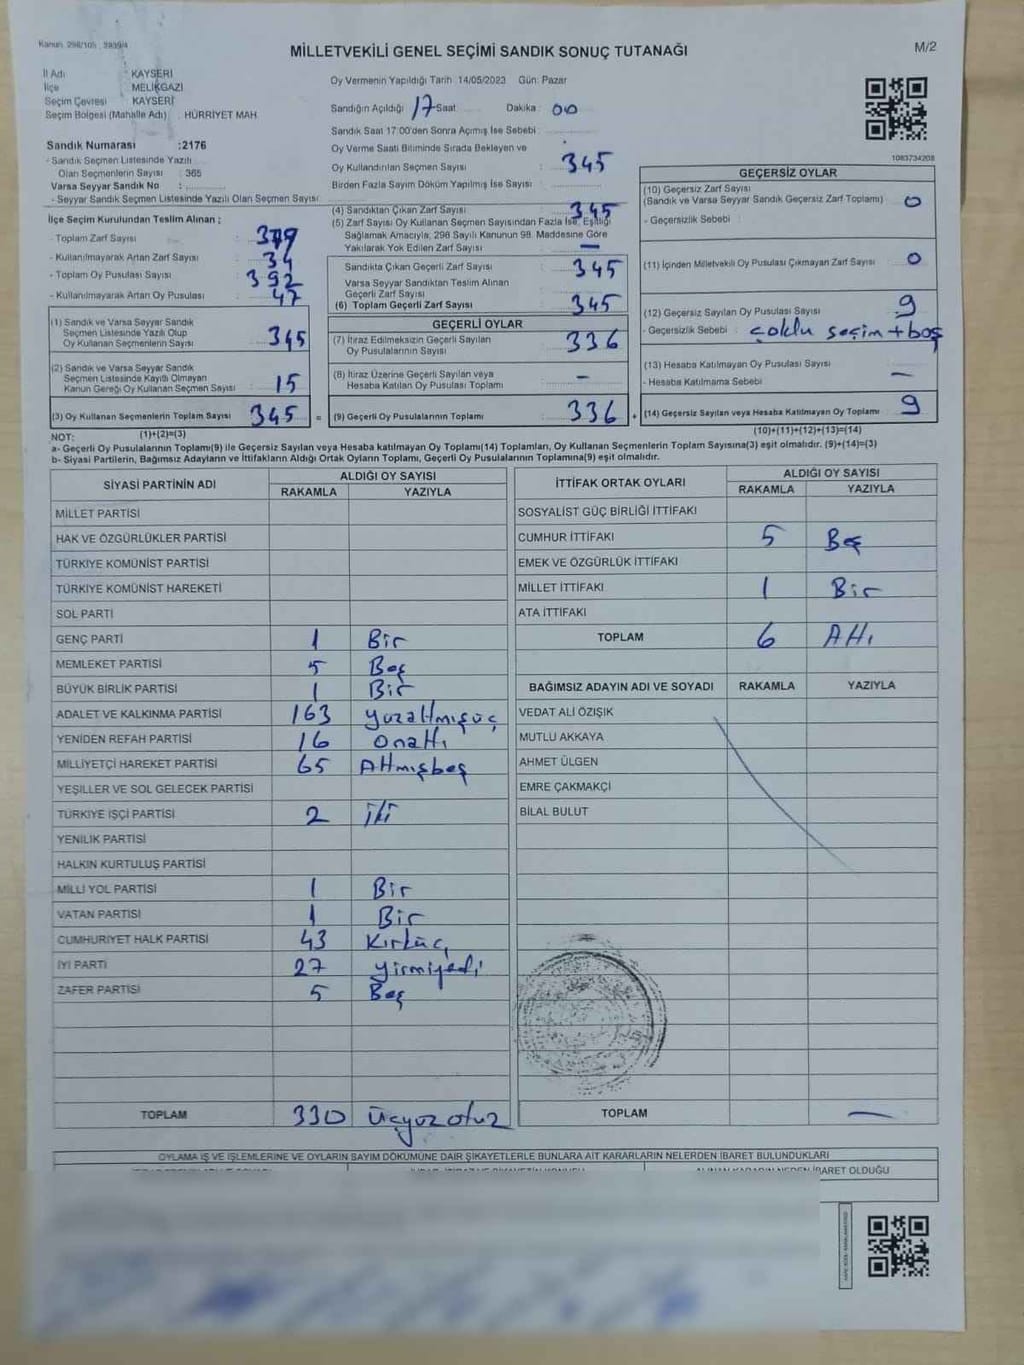 Kanun: 298/105 : 3939/4
MİLLETVEKİLİ GENEL SEÇİMİ SANDIK SONUÇ TUTANAĞI
M/2
İl Adı : KAYSERİ
İlçe : MELİKGAZİ
Seçim Çevresi : KAYSERİ
Seçim Bölgesi (Mahalle Adı) : HÜRRİYET MAH.
Sandık Numarası :2176
- Sandık Seçmen Listesinde Yazılı
Olan Seçmenlerin Sayısı : 365
Varsa Seyyar Sandık No :
- Seyyar Sandık Seçmen Listesinde Yazılı Olan Seçmen Sayısı
İlçe Seçim Kurulundan Teslim Alınan ;
- Toplam Zarf Sayısı : 379
- Kullanılmayarak Artan Zarf Sayısı : 34
- Toplam Oy Pusulası Sayısı : 392
- Kullanılmayarak Artan Oy Pusulası : 47
(1) Sandık ve Varsa Seyyar Sandık
Seçmen Listesinde Yazılı Olup
Oy Kullanan Seçmenlerin Sayısı : 345
(2) Sandık ve Varsa Seyyar Sandık
Seçmen Listesinde Kayıtlı Olmayan
Kanun Gereği Oy Kullanan Seçmen Sayısı : 15
(3) Oy Kullanan Seçmenlerin Toplam Sayısı : 345 =
Oy Vermenin Yapıldığı Tarih: 14/05/2023 Gün: Pazar
Sandığın Açıldığı 17 Saat Dakika : 00
Sandık Saat 17:00'den Sonra Açımış İse Sebebi :
Oy Verme Saati Bitiminde Sırada Bekleyen ve
Oy Kullandırılan Seçmen Sayısı : 345
Birden Fazla Sayım Döküm Yapılmış İse Sayısı :
(4) Sandıktan Çıkan Zarf Sayısı : 345
(5) Zarf Sayısı Oy Kullanan Seçmen Sayısından Fazla İse, Eşitliği
Sağlamak Amacıyla, 298 Sayılı Kanunun 98. Maddesine Göre
Yakılarak Yok Edilen Zarf Sayısı : —
Sandıkta Çıkan Geçerli Zarf Sayısı : 345
Varsa Seyyar Sandıktan Teslim Alınan
Geçerli Zarf Sayısı :
(6) Toplam Geçerli Zarf Sayısı : 345
GEÇERLİ OYLAR
(7) İtiraz Edilmeksizin Geçerli Sayılan
Oy Pusulalarının Sayısı : 336
(8) İtiraz Üzerine Geçerli Sayılan veya
Hesaba Katılan Oy Pusulası Toplamı : —
(9) Geçerli Oy Pusulalarının Toplamı : 336 +
1083734208
GEÇERSİZ OYLAR
(10) Geçersiz Zarf Sayısı
(Sandık ve Varsa Seyyar Sandık Geçersiz Zarf Toplamı) : 0
- Geçersizlik Sebebi :
(11) İçinden Milletvekili Oy Pusulası Çıkmayan Zarf Sayısı : 0
(12) Geçersiz Sayılan Oy Pusulası Sayısı : 9
- Geçersizlik Sebebi : çoklu seçim + boş
(13) Hesaba Katılmayan Oy Pusulası Sayısı : —
- Hesaba Katılmama Sebebi :
(14) Geçersiz Sayılan veya Hesaba Katılmayan Oy Toplamı : 9
NOT: (1)+(2)=(3) (10)+(11)+(12)+(13)=(14)
a- Geçerli Oy Pusulalarının Toplamı(9) ile Geçersiz Sayılan veya Hesaba katılmayan Oy Toplamı(14) Toplamları, Oy Kullanan Seçmenlerin Toplam Sayısına(3) eşit olmalıdır. (9)+(14)=(3)
b- Siyasi Partilerin, Bağımsız Adayların ve İttifakların Aldığı Ortak Oyların Toplamı, Geçerli Oy Pusulalarının Toplamına(9) eşit olmalıdır.
SİYASİ PARTİNİN ADI ALDIĞI OY SAYISI
RAKAMLA YAZIYLA
MİLLET PARTİSİ
HAK VE ÖZGÜRLÜKLER PARTİSİ
TÜRKİYE KOMÜNİST PARTİSİ
TÜRKİYE KOMÜNİST HAREKETİ
SOL PARTİ
GENÇ PARTİ 1 Bir
MEMLEKET PARTİSİ 5 Beş
BÜYÜK BİRLİK PARTİSİ 1 Bir
ADALET VE KALKINMA PARTİSİ 163 Yüzaltmışüç
YENİDEN REFAH PARTİSİ 16 Onaltı
MİLLİYETÇİ HAREKET PARTİSİ 65 Altmışbeş
YEŞİLLER VE SOL GELECEK PARTİSİ
TÜRKİYE İŞÇİ PARTİSİ 2 İki
YENİLİK PARTİSİ
HALKIN KURTULUŞ PARTİSİ
MİLLİ YOL PARTİSİ 1 Bir
VATAN PARTİSİ 1 Bir
CUMHURİYET HALK PARTİSİ 43 Kırküç
İYİ PARTİ 27 Yirmiyedi
ZAFER PARTİSİ 5 Beş
TOPLAM 330 Üçyüzotuz
İTTİFAK ORTAK OYLARI ALDIĞI OY SAYISI
RAKAMLA YAZIYLA
SOSYALİST GÜÇ BİRLİĞİ İTTİFAKI
CUMHUR İTTİFAKI 5 Beş
EMEK VE ÖZGÜRLÜK İTTİFAKI
MİLLET İTTİFAKI 1 Bir
ATA İTTİFAKI
TOPLAM 6 Altı
BAĞIMSIZ ADAYIN ADI VE SOYADI RAKAMLA YAZIYLA
VEDAT ALİ ÖZIŞIK
MUTLU AKKAYA
AHMET ÜLGEN
EMRE ÇAKMAKÇİ
BİLAL BULUT
TOPLAM —
OYLAMA İŞ VE İŞLEMLERİNE VE OYLARIN SAYIM DÖKÜMÜNE DAİR ŞİKAYETLERLE BUNLARA AİT KARARLARIN NELERDEN İBARET BULUNDUKLARI
ALINAN KARARIN NEDEN İBARET OLDUĞU